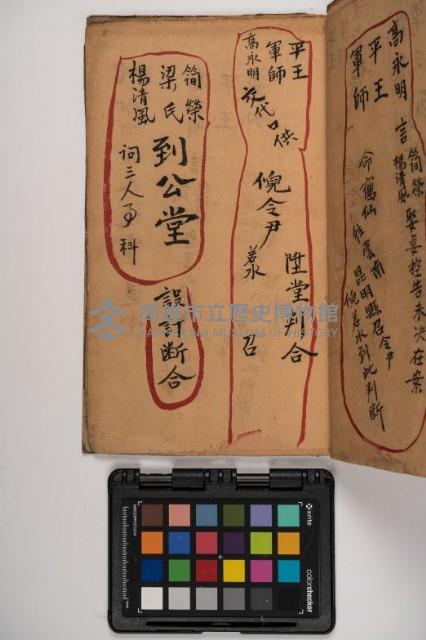 高永明
平王
軍師
言
簡榮
楊清風
娶妾控告未決在案
命
仙
雲南昆明縣召令尹
倪若水到此判斷
平王
軍師
高永明
交代口供
倪令尹
陞堂判合
若水
召
簡榮
梁氏
楊清風
到公堂
詞三人
科
設計断合
高雄市立歷史博物館
KAOHSIUNG MUSEUM OF HISTORY
x-rite
colorchecker